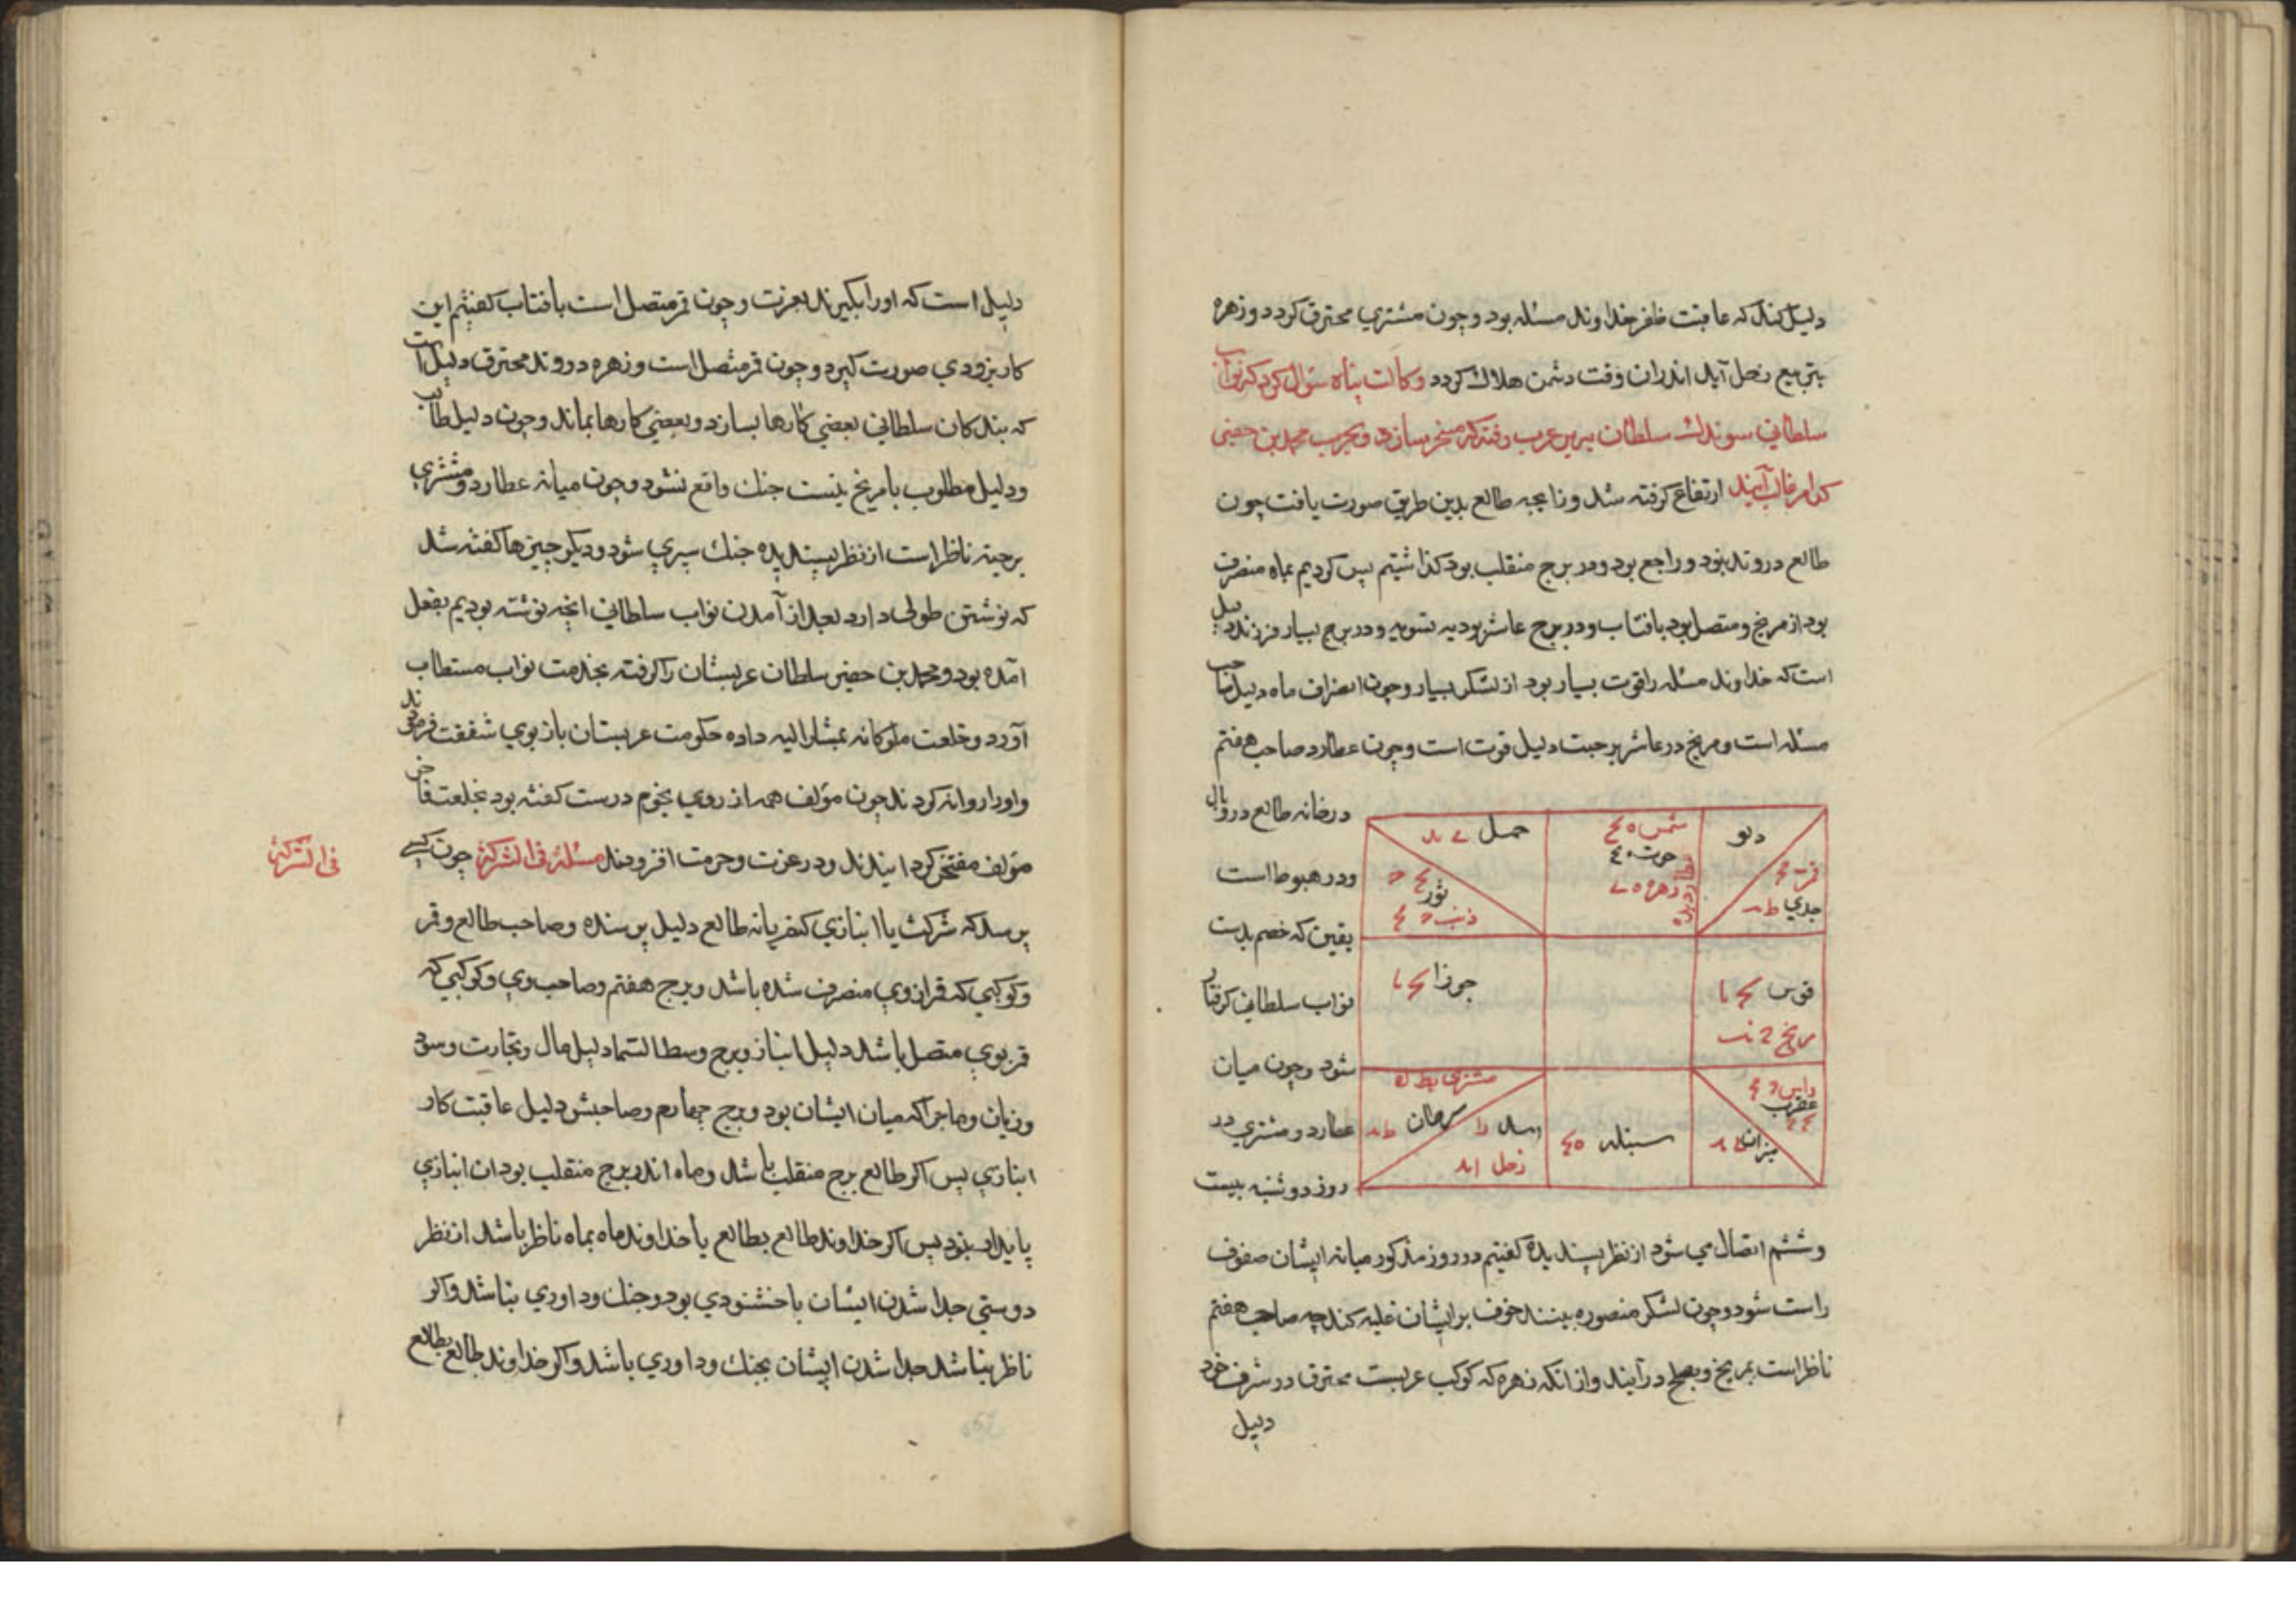 دلیل کند که عاقبت ظفر خداوند مسئله بود و چون مشتری محترق کردد و زهره
بتربیع زحل آید اندران وقت دشمن هلاک کردد وکالت پناه سؤال کرد که نواب
سلطانی سوندک سلطان بر عرب رفته که مسخر سازد و بحرب محمد بن
کدام غالب آیند ارتفاع کرفته شد و زایجه طالع بدین طریق صورت یافت چون
طالع در وتد بود و راجع بود و در برج منقلب بود کذاشتیم پس کردیم بماه منصرف
بود از مریخ و متصل بود بافتاب و در برج عاشر بود به تسویه و در برج بسیار فرزند دلیل
است که خداوند مسئله را قوت بسیار بود از لشکر بسیار و چون انصراف ماه دلیل صاحب
مسئله است و مریخ در عاشر برجیت دلیل قوت است و چون عطارد صاحب هفتم
در خانه طالع در وبال
و در هبوط است
یقین که خصم بدست
نواب سلطانی کرفتار
شود و چون میان
عطارد و مشتری در
روز دوشنبه بیست
دلو
قمر
جدی
شمس
حوت
زهره
عطارد
حمل
ثور
ذنب
قوس
مریخ
جوزا
راس
عقرب
میزان
سنبله
مشتری
سرطان
اسد
زحل
و ششم اتصال می شود از نظر پسندیده کفتیم در روز مذکور میانه ایشان صفوف
راست شود و چون لشکر منصوره بینند خوف بر ایشان غلبه کند چه صاحب هفتم
ناظر است بمریخ و بصلح درآیند و از انکه زهره که کوکب عربست محترق در شرف خود
دلیل
دلیل است که او را بکیرند بعزت و چون قمر متصل است بافتاب کفتیم این
کار بزودی صورت کیرد و چون قمر متصل است و زهره در وتد محترق دلیل است
که بندکان سلطانی بعضی کارها بسازد و بعضی کارها بماند و چون دلیل طالب
و دلیل مطلوب با مریخ نیست جنک واقع نشود و چون میانه عطارد و مشتری
برجیته ناظر است از نظر پسندیده جنک سپری شود و دیکر چیزها کفته شد
که نوشتن طولی دارد بعد از آمدن نواب سلطانی انچه نوشته بودیم بفعل
آمده بود و محمد بن سلطان عربستان را کرفته بخدمت نواب مستطاب
آورد و خلعت ملوکانه بمشار الیه داده حکومت عربستان باز بوی شفقت فرمودند
و او را روانه کردند چون مؤلف همه از روی نجوم درست کفته بود بخلعت فاخر
مؤلف مفتخر کردانیدند و در عزت و حرمت افزودند مسئلة فی الشرکة چون کسی
فی الشرکة
پرسد که شرکت یا انبازی کنم یا نه طالع دلیل پرسنده و صاحب طالع و قمر
و کوکبی که قمر از وی منصرف شده باشد و برج هفتم و صاحب وی و کوکبی که
قمر بوی متصل باشد دلیل انباز و برج وسط السما دلیل مال و تجارت و سود
و زیان و ماجرا که میان ایشان بود و برج چهارم و صاحبش دلیل عاقبت کار
انبازی پس اکر طالع برج منقلب باشد و ماه اندر برج منقلب بود ان انبازی
پایدار نبود پس اکر خداوند طالع بطالع یا خداوند ماه بماه ناظر باشد از نظر
دوستی جدا شدن ایشان با خشنودی بود و جنک و داوری نباشد و اکر
ناظر نباشد جدا شدن ایشان بجنک و داوری باشد و اکر خداوند طالع بطالع